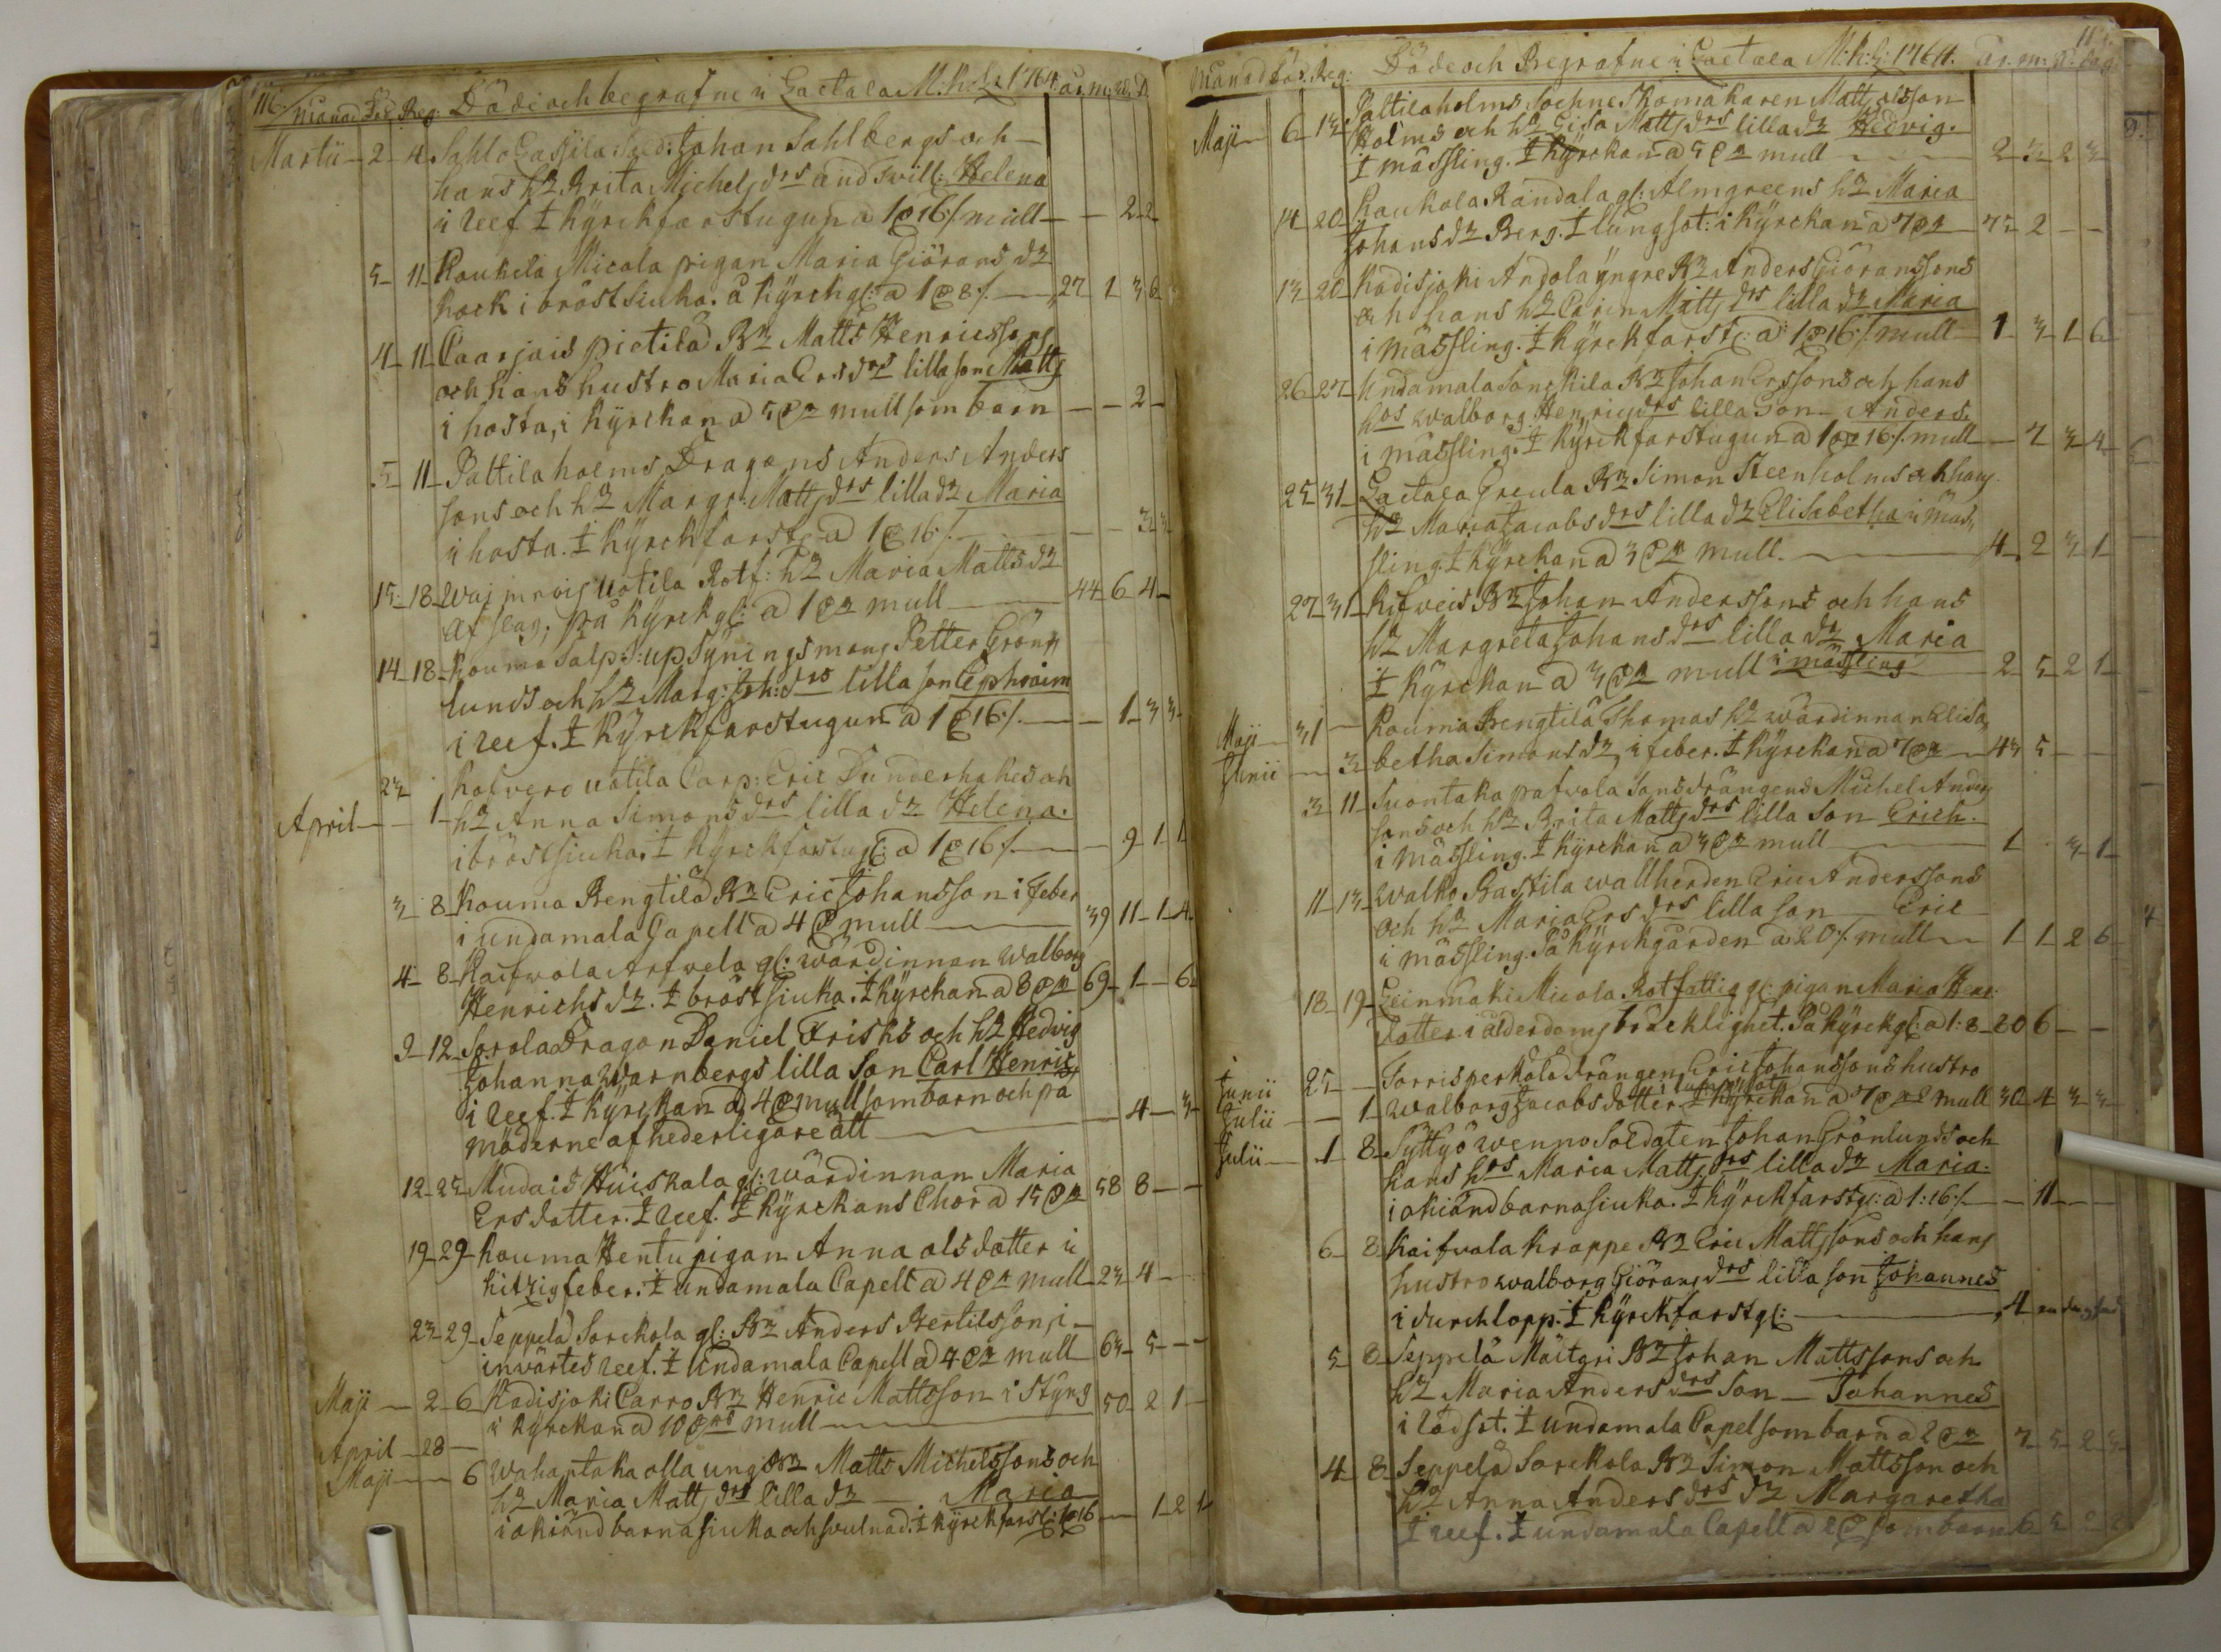 116. Månad Död. Beg. Döde och begrafne i Laetala M:k:l: 1764. år. m. W. D.
Martii 2 4 Sahlo Sold: Johan Sahlbergs och
hans hr Brita Michelsdrs andswill: Helena
i reef. I kyrckfarstugun a 1 16 mull 2 2
5 11 Kaukola Micala pigan Maria Giörans dr
kock i bröst siuka. å kyrckg: a 1 8 27 1 3 6
4 11 Caarjais Pietilä Br Matts Henricssons
och hans hustro Maria Ers drs lilla son Matts
i hosta, i kyrckan a 5 mull som barn 2
5 11 Pattilaholms Dragons Anders Anders
sons och hr Margr: Matts drs lilla dr Maria
i hosta. I kyrckfarst: a 1 16 3 3
15 18 uotila Rotf: hr Maria Matts dr
af slag, på kyrckg: a 1 mull 44 6 4
14 18 Kouma Salp: upsynings mans Petter Grön
lunds och hr Marg: Joh: drs lilla son Ephraim
i reef. I kyrckfarstugun a 1 16 1 3 3
23 Kafvero uotila Corp: Eric Dunderhakes och
April 1 hr Anna Simons drs lilla dr Helena.
i bröstsiuka. I kyrckfarstug: a 1 16 9 1 1
3 8 Kouma Bengtilä Br Eric Johansson i feber
i undamala Capell a 4 mull 39 11 1 4
4 8 Kaifvola Arfvela gl: wärdinnan Walborg
Henrichs dr. I bröst siuka. I kyrckan a 8 69 1 6
9 12 Sorola Dragon Daniel Frisks och hr Hedvig
Johanna Warnbergs lilla Son Carl Henric
i reef. I kyrckan a 4 mull som barn och på
möderne af hederligare ätt 4 3
12 25 Mudais Huiskala gl: wärdinnan Maria
Ersdotter. I reef. I kyrckans Chor a 15 58 8
19 29 Kouma Hentu pigan Anna olsdotter i
hitzig feber. I undamala Capell a 4 mull 23 4
23 29 Seppelä Sorckola gl: Br Anders Bertilsson i
inwärtes reef. I undamala Capell a 4 mull 63 5
Maji 2 6 Kadisjoki Carro Br Henric Mattsson i Styng
i kyrckan a 10 mull 50 2 1
April 28
Maji 6 Wahantaka olla ung Br Matts Michelssons och
hr Maria Matts drs lilla dr Maria
i okiänd barnasiuka och svulnad. I kyrckfarst: 1 16 1 2 1
Månad Död. Beg: Döde och Begrafne i Laetala M:k:l: 1764. år. m. W. dag.
Maji 6 13 Pattilaholms Sochne Skomakaren Matts
Holms och hr Lisa Matts drs lilla dr Hedvig.
I mässling. I kyrckan a 5 mull 2 3 2 3
14 20 Kaukola Randala gl: Almgreens hr Maria
Johans dr Berg. I lungsot: i kyrckan a 7 75 2
13 20 Kadisjoki Andola yngre Br Anders Giöranssons
och hans hr Carin Matts drs lilla dr Maria
i mässling. I kyrckfarst: a 1 16 mull 1 3 1 6
26 27 Undamala Br Johan Erssons och hans
hos Walborg Henrics drs lilla Son Anders.
i mässling. I kyrckfarstugun a 1 16 mull 7 3 4
25 31 Laetala Greula Br Simon Steenholms och hans
hr Maria Jacobs drs lilla dr Elisabetha i mäs
sling. I kyrckan a 3 mull. 4 2 3 1
27 31 Kifveis Br Johan Anderssons och hans
hr Margreta Johans drs lilla dr Maria
I kyrckan a 3 mull i mässling 2 5 2 1
Maji 31 Kouma Bengtilä Thomas hr wärdinnan Elisa
Junii 3 betha Simons dr, i feber. I kyrckan a 7 43 5
3 11 Suontaka pafvola Sonsdrängens Michel Anders
sons och hr Brita Matts drs lilla Son Erich.
i mässling. I kyrckan a 3 mull 1 3 1
11 13 Walko Bastila wallherden Eric Anderssons
och hr Maria Ers drs lilla son Eric
i mässling. På kyrckgården a 20 mull 1 1 2 6
18 19 Leinmäki Micola Rotfattig gl: pigan Maria Henr:
dotter i ålderdoms bräcklighet. På kyrckg: a 1: 8 80 6
Junii 25 Torris perkola drängen Eric Johanssons hustro
Julii 1 Walborg Jacobs dotter. i lungsot I kyrckan a 7 mull 30 4 3 3
Julii 1 8 Syttyö wenno Soldaten Johan Grönlunds och
hans hos Maria Matts drs lilla dr Maria.
i okiänd barnasiuka. I kyrckfarstg: a 1: 16 11
6 8 Kaifvola krappe Br Eric Mattssons och hans
hustro Walborg Giörans drs lilla son Johannes
i durchlopp. I kyrckfarstg: 4
5 8 Seppelä Mäitgri Br Johan Mattssons och
hr Maria Anders drs Son Johannes
i rödsot. I undamala Capel som barn a 2 7 5 2 3
4 8 Seppelä Sorckola Br Simon Mattsson och
hr Anna Anders drs dr Margaretha
I reef. I undamala Capell a 2 som barn 6 5